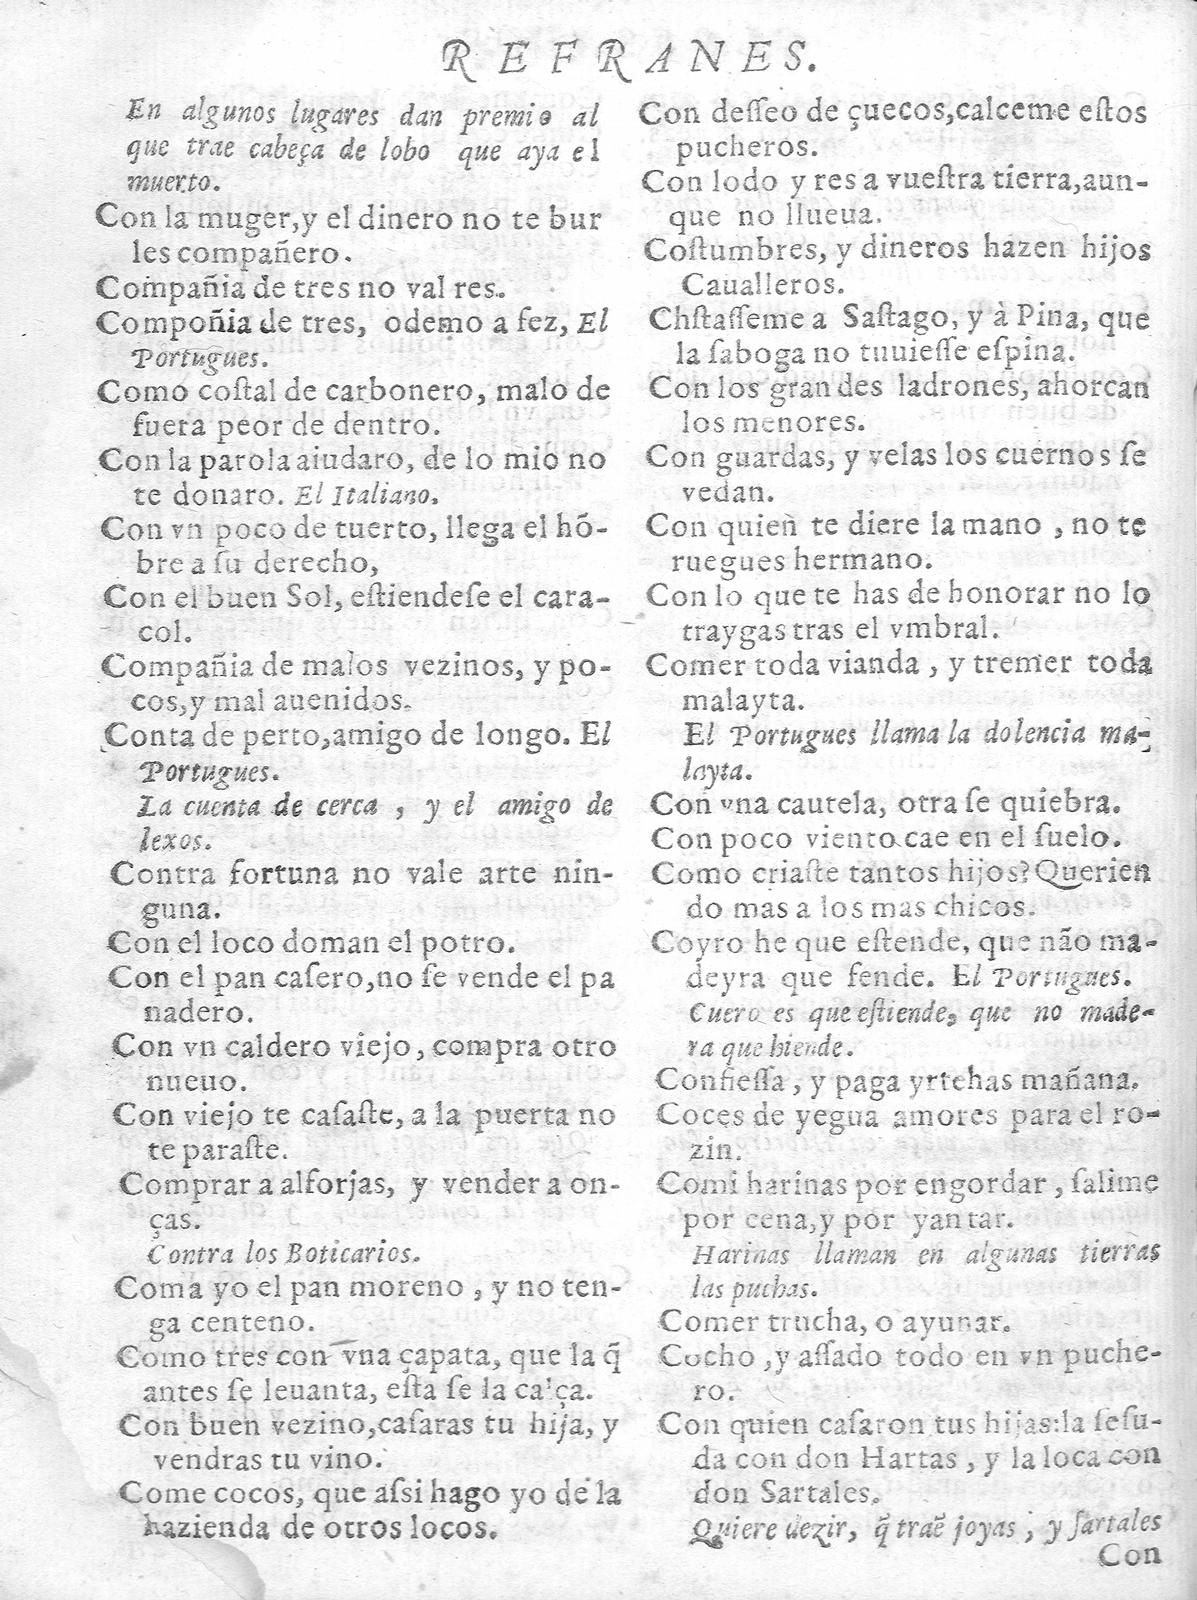 REFRANES.
En algunos lugares dan premio al
que trae cabeça de lobo que aya el
muerto.
Con la muger,y el dinero no te bur
les compañero.
Compañia de tres no val res.
Compoñia de tres, odemo a fez, El
Portugues.
Como coſtal de carbonero, malo de
fuera peor de dentro.
Con la parola aiudaro, de lo mio no
te donaro. El Italiano.
Con vn poco de tuerto, llega el hõ-
bre a ſu derecho,
Con el buen Sol, eſtiendeſe el cara-
col.
Compañia de malos vezinos, y po-
cos,y mal auenidos.
Conta de perto,amigo de longo. El
Portugues.
La cuenta de cerca , y el amigo de
lexos.
Contra fortuna no vale arte nin-
guna.
Con el loco doman el potro.
Con el pan caſero,no ſe vende el pa
nadero.
Con vn caldero viejo, compra otro
nueuo.
Con viejo te caſaſte, a la puerta no
te paraſte.
Comprar a alforjas, y vender a on-
ças.
Contra los Boticarios.
Coma yo el pan moreno , y no ten-
ga centeno.
Como tres con vna çapata, que la q̃
antes ſe leuanta, eſta ſe la calça.
Con buen vezino,caſaras tu hija, y
vendras tu vino.
Come cocos, que aſsi hago yo de la
hazienda de otros locos.
Con deſſeo de çuecos,calceme eſtos
pucheros.
Con lodo y res a vueſtra tierra,aun-
que no llueua.
Coſtumbres, y dineros hazen hijos
Caualleros.
Chſtaſſeme a Saſtago, y à Pina, que
la ſaboga no tuuieſſe eſpina.
Con los grandes ladrones, ahorcan
los menores.
Con guardas, y velas los cuernos ſe
vedan.
Con quien te diere la mano , no te
ruegues hermano.
Con lo que te has de honorar no lo
traygas tras el vmbral.
Comer toda vianda , y tremer toda
malayta.
El Portugues llama la dolencia ma-
layta.
Con vna cautela, otra ſe quiebra.
Con poco viento cae en el ſuelo.
Como criaſte tantos hijos? Querien
do mas a los mas chicos.
Coyro he que eſtende, que não ma-
deyra que fende. El Portugues.
Cuero es que eſtiende, que no made-
ra que hiende.
Confieſſa , y paga yrtehas mañana.
Coces de yegua amores para el ro-
zin.
Comi harinas por engordar , ſalime
por cena,y por yantar.
Harinas llaman en algunas tierras
las puchas.
Comer trucha, o ayunar.
Cocho ,y aſſado todo en vn puche-
ro.
Con quien caſaron tus hijas:la ſeſu-
da con don Hartas , y la loca con
don Sartales.
Quiere dezir, q̃ traẽ joyas , y ſartales
Con